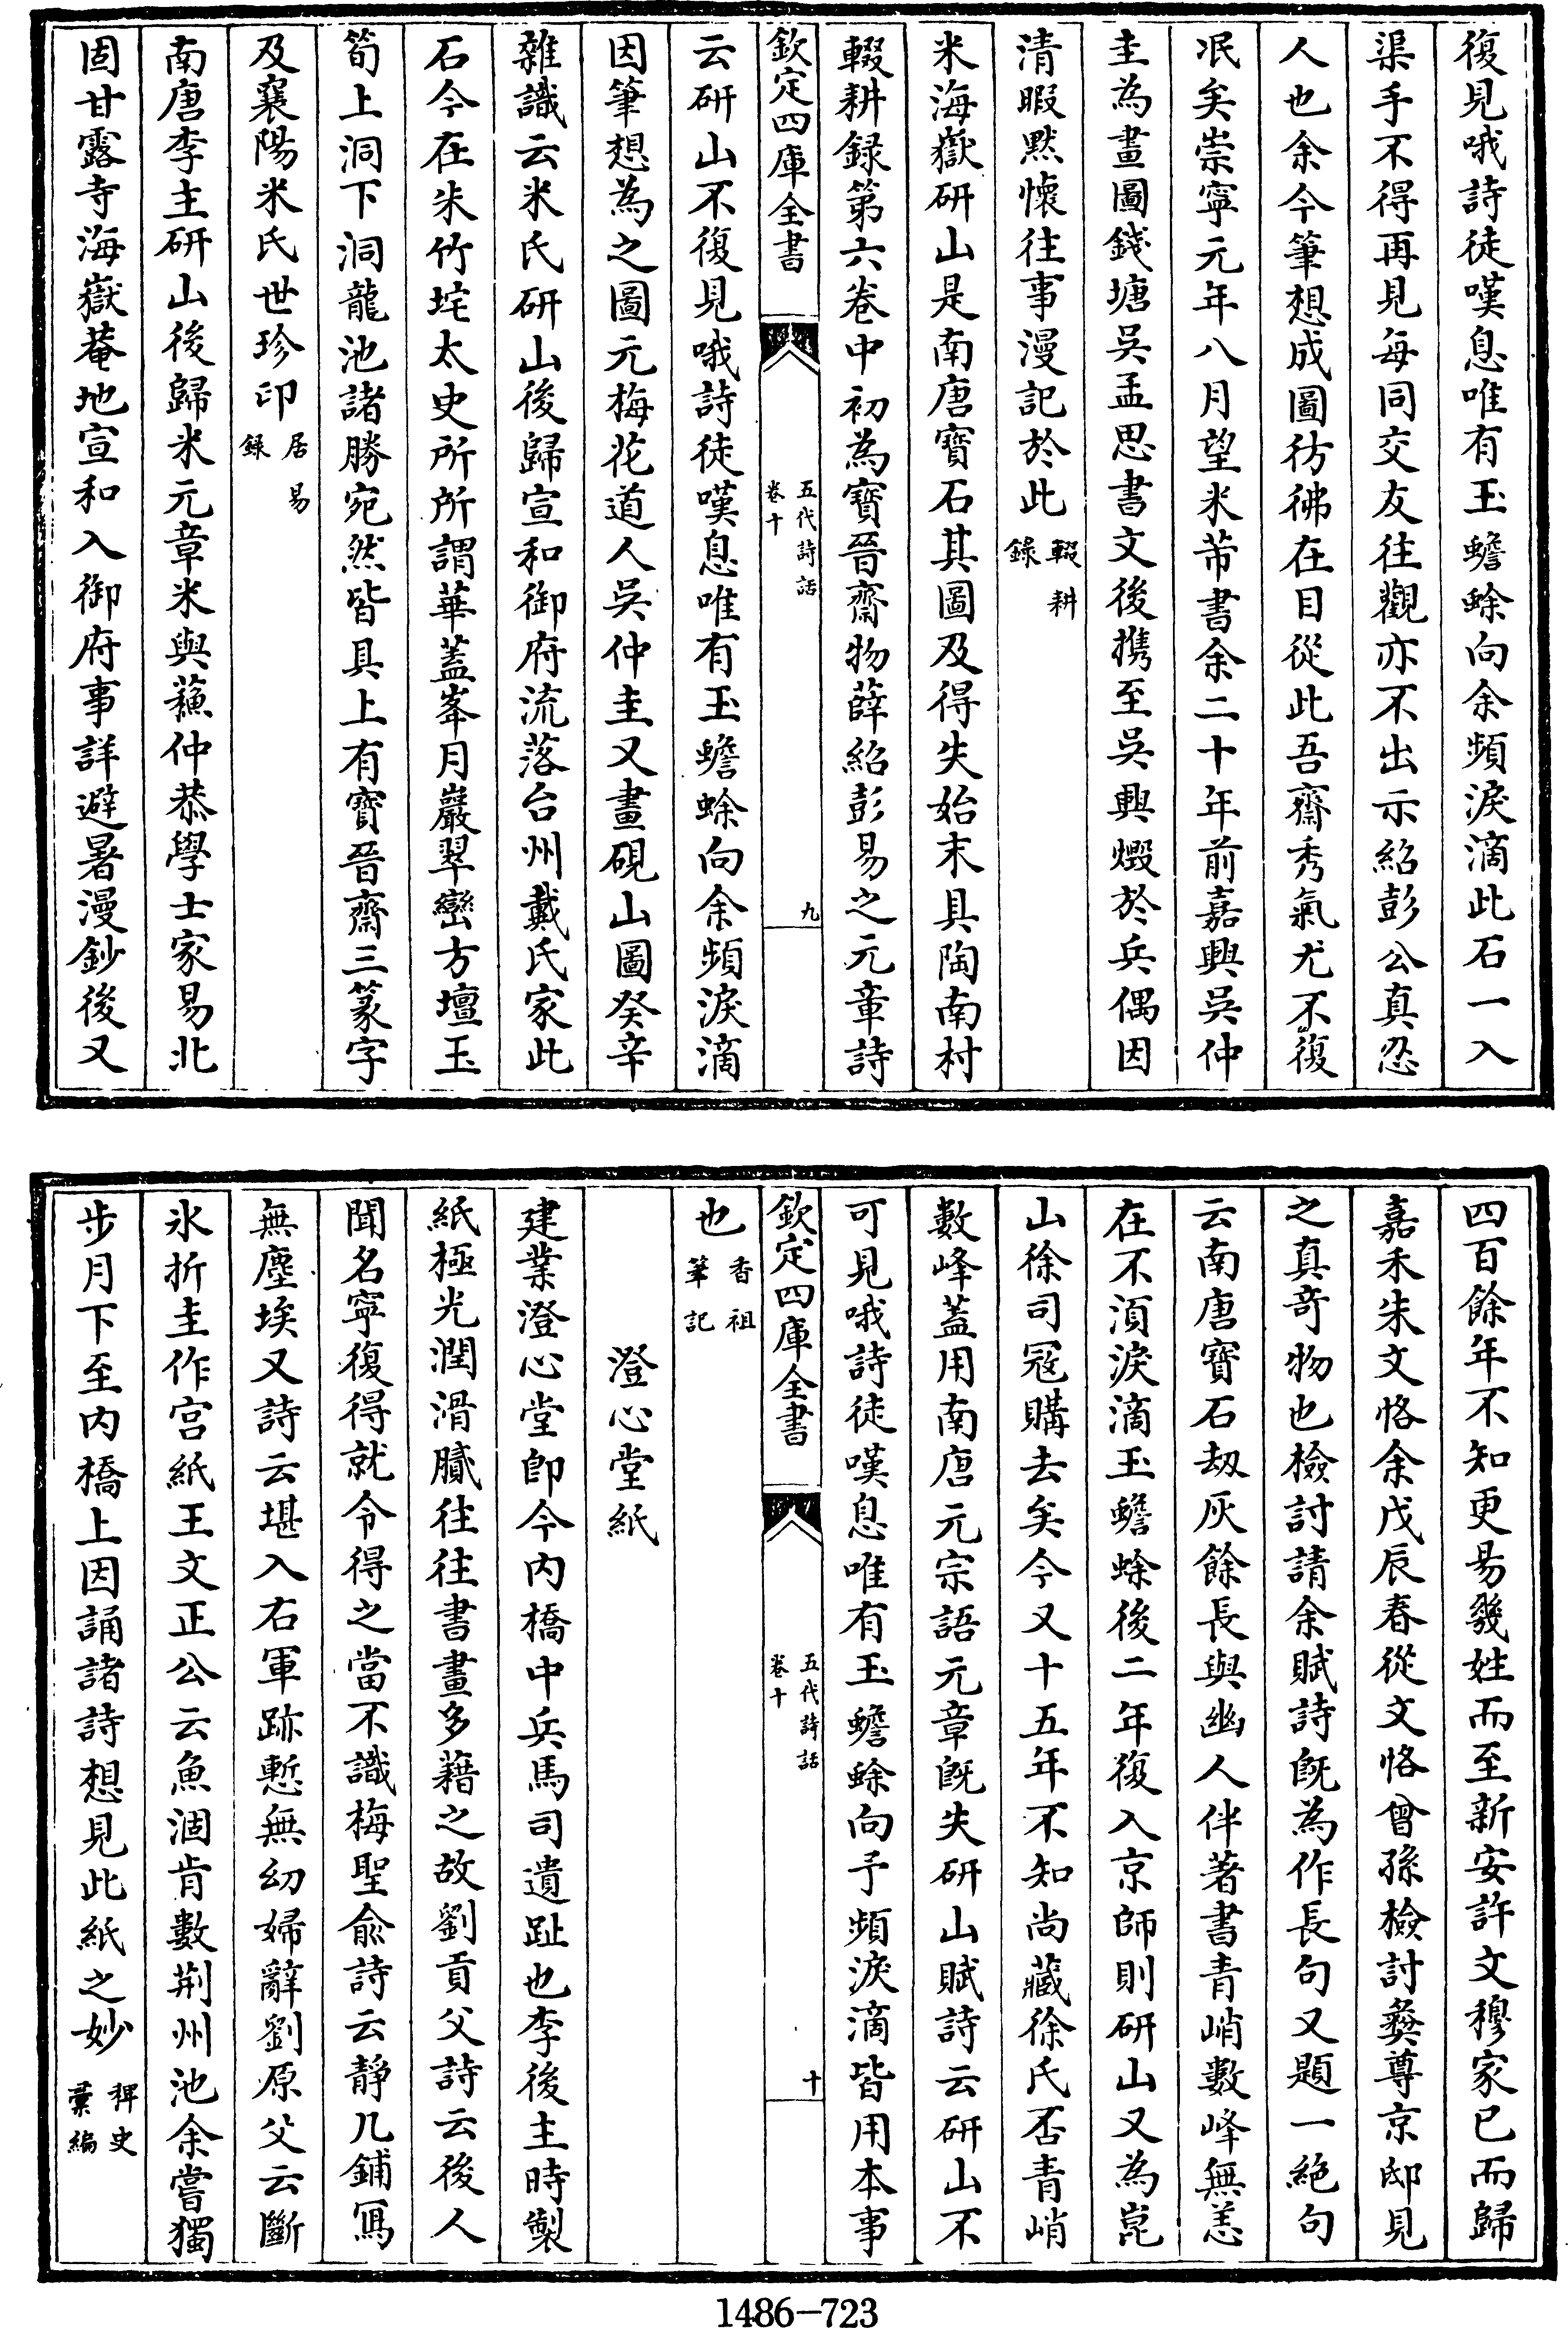 復見哦詩徒嘆息唯有玉蟾蜍向余頻淚滴此石一入
渠手不得再見每同交友往觀亦不出示紹彭公真忍
人也余今筆想成圖彷彿在目從此吾齋秀氣尤不復
泯矣崇寧元年八月望米芾書余二十年前嘉興吳仲
圭為畫圖錢塘吳孟思書文後攜至吳興燬於兵偶因
清暇默懷往事漫記於此輟耕録
米海嶽研山是南唐寶石其圖及得失始末具陶南村
輟耕録第六卷中初為寶晉齋物薛紹彭易之元章詩
欽定四庫全書 五代詩話卷十 九
云研山不復見哦詩徒嘆息唯有玉蟾蜍向余頻淚滴
因筆想為之圖元梅花道人吳仲圭又畫硯山圖癸辛
雜識云米氏研山後歸宣和御府流落台州戴氏家此
石今在朱竹垞太史所所謂華蓋峯月巖翠巒方壇玉
筍上洞下洞龍池諸勝宛然皆具上有寶晉齋三篆字
及襄陽米氏世珍印居易録
南唐李主研山後歸米元章米與蘓仲恭學士家易北
固甘露寺海嶽菴地宣和入御府事詳避暑漫鈔後又
四百餘年不知更易幾姓而至新安許文穆家已而歸
嘉禾朱文恪余戊辰春從文恪曾孫檢討彝尊京邸見
之真奇物也檢討請余賦詩既為作長句又題一絶句
云南唐寶石刼灰餘長與幽人伴著書青峭數峰無恙
在不湏淚滴玉蟾蜍後二年復入京師則研山又為崑
山徐司冦購去矣今又十五年不知尚藏徐氏否青峭
數峰蓋用南唐元宗語元章既失研山賦詩云研山不
可見哦詩徒嘆息唯有玉蟾蜍向予頻淚滴皆用本事
欽定四庫全書 五代詩話卷十 十
也香祖筆記
澄心堂紙
建業澄心堂即今內橋中兵馬司遺趾也李後主時製
紙極光潤滑膩往往書畫多藉之故劉貢父詩云後人
聞名寧復得就令得之當不識梅聖俞詩云靜几鋪寫
無塵埃又詩云堪入右軍跡慙無幼婦辭劉原父云斷
氷折圭作宫紙王文正公云魚涸肯數荆州池余嘗獨
步月下至內橋上因誦諸詩想見此紙之妙稗史彙編
1486-723